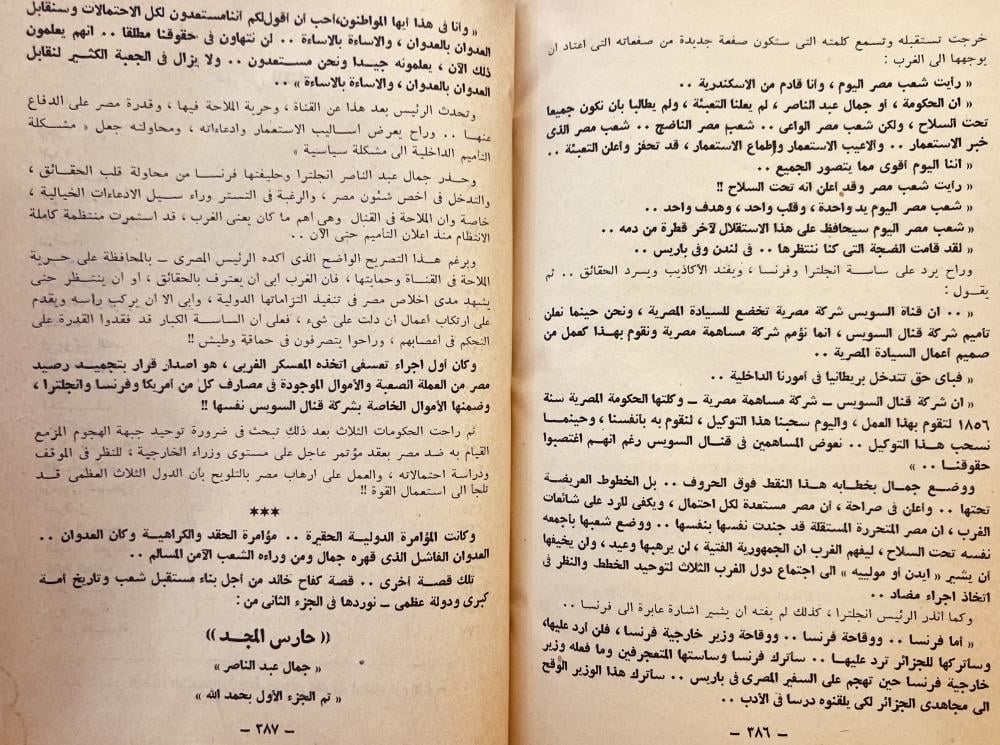 خرجت تستقبله وتسمع كلمته التى ستكون صفعة جديدة من صفعاته التى اعتاد ان
يوجهها الى الغرب :
« رأيت شعب مصر اليوم ، وأنا قادم من الاسكندرية ..
« ان الحكومة ، أو جمال عبد الناصر ، لم يعلنا التعبئة ، ولم يطالبا بأن نكون جميعا
تحت السلاح ، ولكن شعب مصر الواعى .. شعب مصر الناضج .. شعب مصر الذى
خبر الاستعمار .. وألاعيب الاستعمار وأطماع الاستعمار ، قد تحفز وأعلن التعبئة ..
« اننا اليوم أقوى مما يتصور الجميع ..
« رأيت شعب مصر وقد أعلن انه تحت السلاح !!
« شعب مصر اليوم يد واحدة ، وقلب واحد ، وهدف واحد ..
« شعب مصر اليوم سيحافظ على هذا الاستقلال لآخر قطرة من دمه ..
« لقد قامت الضجة التى كنا ننتظرها .. فى لندن وفى باريس ..
وراح يرد على ساسة انجلترا وفرنسا ، ويفند الأكاذيب ويسرد الحقائق .. ثم
يقول :
« .. ان قناة السويس شركة مصرية تخضع للسيادة المصرية ، ونحن حينما نعلن
تأميم شركة قنال السويس ، انما نؤمم شركة مساهمة مصرية ونقوم بهذا كعمل من
صميم أعمال السيادة المصرية ..
« فبأى حق تتدخل بريطانيا فى أمورنا الداخلية ..
« ان شركة قنال السويس ــ شركة مساهمة مصرية ــ وكلتها الحكومة المصرية سنة
١٨٥٦ لتقوم بهذا العمل ، واليوم سحبنا هذا التوكيل ، لنقوم به بأنفسنا ، وحينما
نسحب هذا التوكيل .. نعوض المساهمين فى قنال السويس رغم انهم اغتصبوا
حقوقنا .. »
ووضع جمال بخطابه هذا النقط فوق الحروف .. بل الخطوط العريضة
تحتها .. وأعلن فى صراحة ، أن مصر مستعدة لكل احتمال ، ويكفى للرد على شائعات
الغرب ، ان مصر المتحررة المستقلة قد جندت نفسها بنفسها .. ووضع شعبها بأجمعه
نفسه تحت السلاح ، ليفهم الغرب ان الجمهورية الفتية ، لن يرهبها وعيد ، ولن يخيفها
أن يشير « ايدن أو مولييه » الى اجتماع دول الغرب الثلاث لتوحيد الخطط والنظر فى
اتخاذ اجراء مضاد ..
وكما انذر الرئيس انجلترا ، كذلك لم يفته ان يشير اشارة عابرة الى فرنسا ..
« أما فرنسا .. ووقاحة فرنسا .. ووقاحة وزير خارجية فرنسا ، فلن ارد عليها،
وسأتركها للجزائر ترد عليها .. سأترك فرنسا وساستها المتعجرفين وما فعله وزير
خارجية فرنسا حين تهجم على السفير المصرى فى باريس .. سأترك هذا الوزير الوقح
الى مجاهدى الجزائر لكى يلقنوه درسا فى الأدب ..
ــ ٣٨٦ ــ
« وأنا فى هذا أيها المواطنون،أحب أن أقول لكم أننا مستعدون لكل الاحتمالات وسنقابل
العدوان بالعدوان ، والاساءة بالاساءة .. لن نتهاون فى حقوقنا مطلقا .. انهم يعلمون
ذلك الآن ، يعلمونه جيدا ونحن مستعدون .. ولا يزال فى الجعبة الكثير لنقابل
العدوان بالعدوان ، والاساءة بالاساءة » ..
وتحدث الرئيس بعد هذا عن القناة ، وحرية الملاحة فيها ، وقدرة مصر على الدفاع
عنها .. وراح يعرض اساليب الاستعمار وادعاءاته ، ومحاولته جعل « مشكلة
التأميم الداخلية الى مشكلة سياسية »
وحذر جمال عبد الناصر انجلترا وحليفتها فرنسا من محاولة قلب الحقائق ،
والتدخل فى أخص شئون مصر ، والرغبة فى التستر وراء سيل الادعاءات الخيالية ،
خاصة وان الملاحة فى القنال وهى اهم ما كان يعنى الغرب ، قد استمرت منتظمة كاملة
الانتظام منذ اعلان التأميم حتى الآن ..
وبرغم هذا التصريح الواضح الذى أكده الرئيس المصرى ــ بالمحافظة على حرية
الملاحة فى القناة وحمايتها ، فان الغرب ابى ان يعترف بالحقائق ، او ان ينتظر حتى
يشهد مدى اخلاص مصر فى تنفيذ التزاماتها الدولية ، وابى الا ان يركب رأسه ويقدم
على ارتكاب أعمال ان دلت على شىء ، فعلى أن الساسة الكبار قد فقدوا القدرة على
التحكم فى اعصابهم ، وراحوا يتصرفون فى حماقة وطيش !!
وكان أول اجراء تعسفى اتخذه المعسكر الغربى ، هو اصدار قرار بتجميد رصيد
مصر من العملة الصعبة والأموال الموجودة فى مصارف كل من أمريكا وفرنسا وانجلترا ،
وضمنها الأموال الخاصة بشركة قنال السويس نفسها !!
ثم راحت الحكومات الثلاث بعد ذلك تبحث فى ضرورة توحيد جبهة الهجوم المزمع
القيام به ضد مصر بعقد مؤتمر عاجل على مستوى وزراء الخارجية ، للنظر فى الموقف
ودراسة احتمالاته ، والعمل على ارهاب مصر بالتلويح بأن الدول الثلاث العظمى قد
تلجأ الى استعمال القوة !!
***
وكانت المؤامرة الدولية الحقيرة .. مؤامرة الحقد والكراهية وكان العدوان ..
العدوان الفاشل الذى قهره جمال ومن وراءه الشعب الآمن المسالم ..
تلك قصة أخرى .. قصة كفاح خالد من أجل بناء مستقبل شعب وتاريخ أمة
كبرى ودولة عظمى ــ نوردها فى الجزء الثانى من :
(( حارس المجد ))
« جمال عبد الناصر »
« تم الجزء الأول بحمد الله »
ــ ٣٨٧ ــ